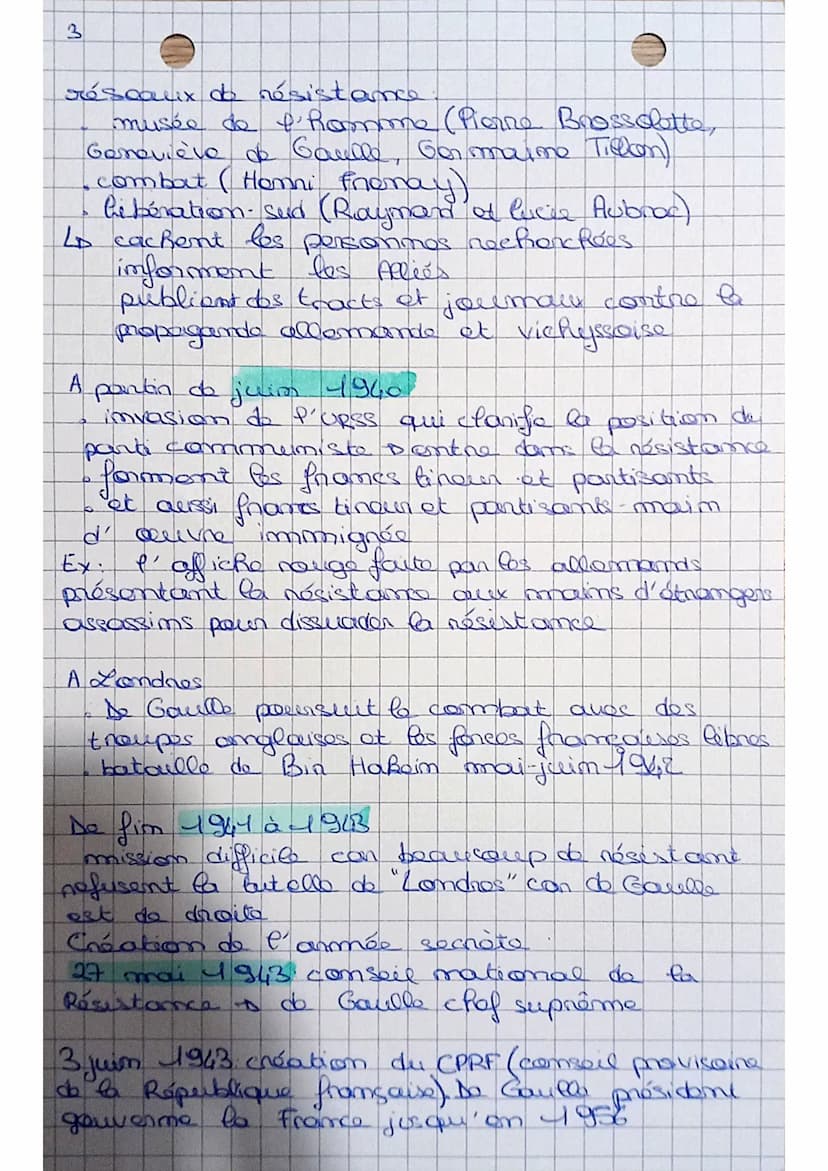 3
réseaux de résistance:
. musée de l'Homme (Pierre Brossolette,
Geneviève de Gaulle, Germaine Tillon)
. combat (Henri frenay)
. libération-sud (Raymard et lucie Aubrac)
↳ cachent les personnes recherchées
informent les Alliés
publient des tracts et journaux contre la
propagande allemande et vichyssoise
A partir de juin 1940
. invasion de l'URSS qui clarifie la position du
parti communiste → entre dans la résistance
. forment les francs tireur et partisants
. et aussi francs tireur et partisants-main
d'œuvre immigrée
Ex: l'affiche rouge faite par les allemands
présentant la résistance aux mains d'étrangers
assassins pour dissuader la résistance
A Londres
. De Gaulle poursuit le combat avec des
troupes anglaises et les forces françaises libres
. bataille de Bir Hakeim mai-juin 1942
De fin 1941 à 1943
mission difficile car beaucoup de résistant
refusent la tutelle de "Londres" car de Gaulle
est de droite
Création de l'armée secrète.
27 mai 1943 conseil national de la
Résistance → de Gaulle chef suprême
3 juin 1943 création du CPRF (conseil provisoire
de la République française). De Gaulle président
gouverne la France jusqu'en 1956